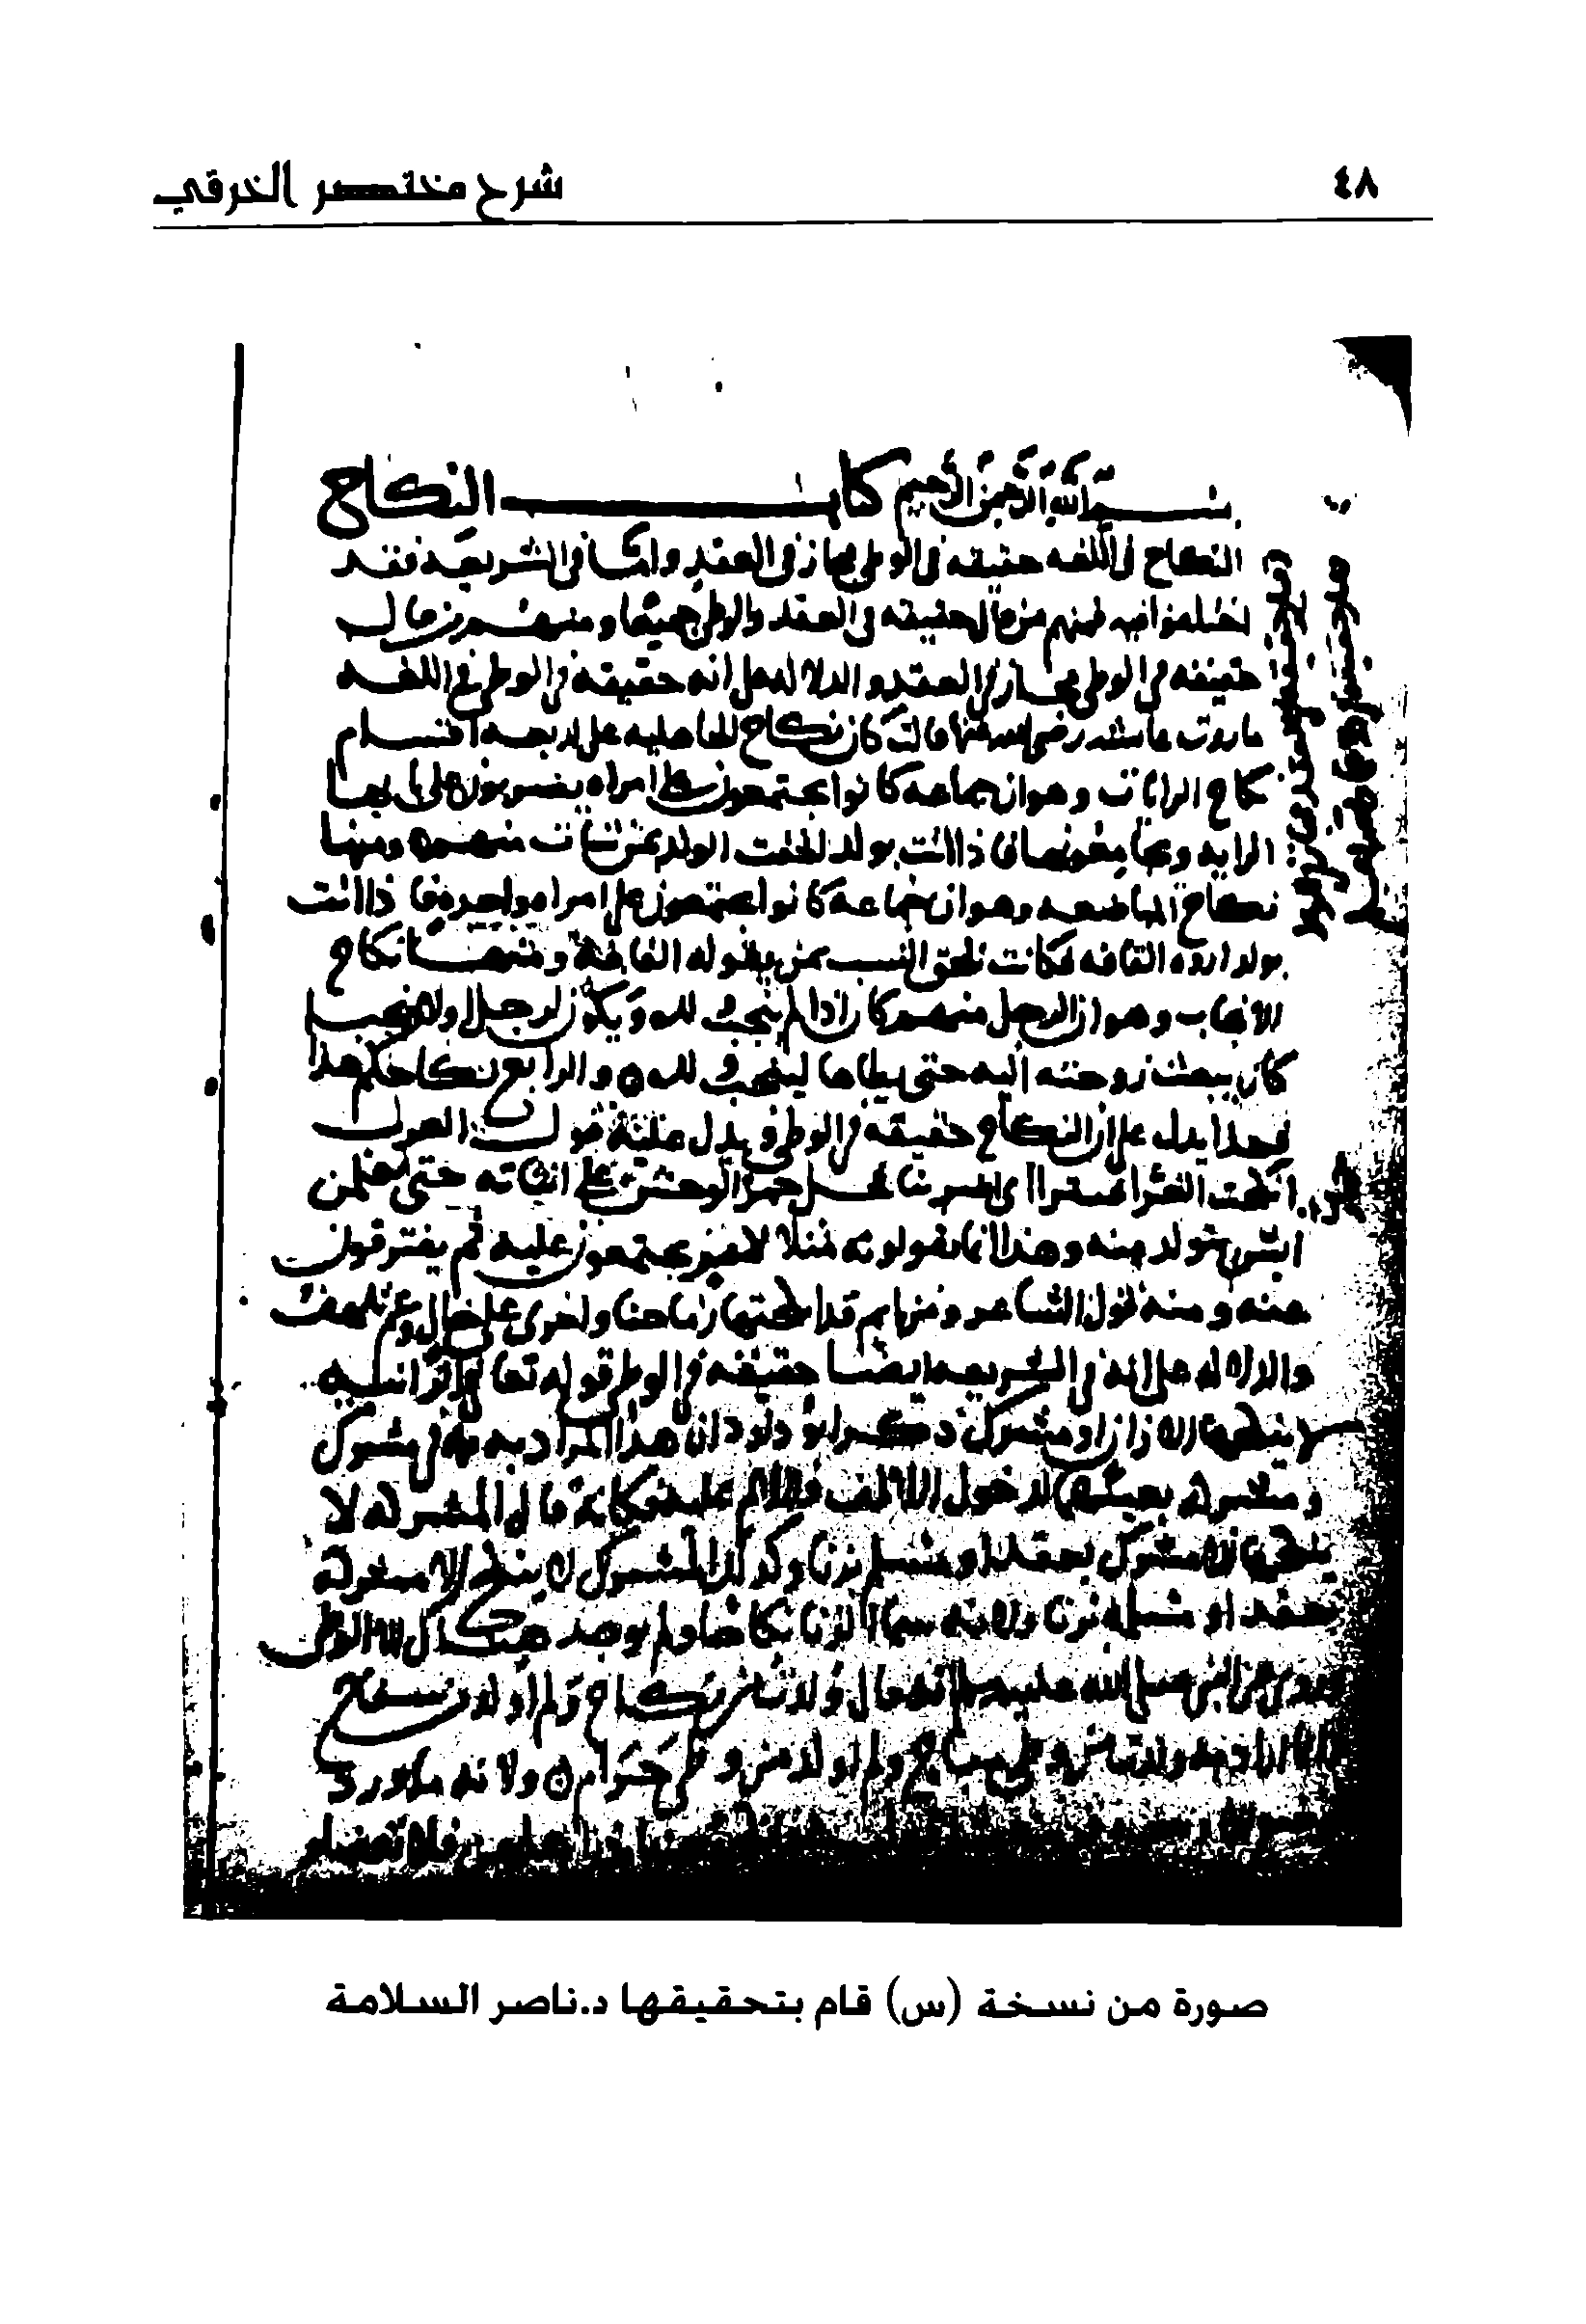 ٤٨
شرح مختصر الخرقي
بسم الله الرحمن الرحيم كتاب النكاح
النكاح في اللغة حقيقه في الوطي مجاز في العقد واما في الشريعه فقد
اختلفوا فيه فمنهم من قال حقيقه في العقد والوطي جميعا ومنهم من قال
حقيقه في الوطي مجاز في العقد والدلاله على انه حقيقه في الوطي في اللغه
ماروت عائشه رضي الله عنها قالت كان نكاح الجاهليه على اربعه اقسام
نكاح الرايات وهو ان جماعه كانوا يجتمعون على امراه يضربون على بابها
الرايه وبها يعرفونها فاذا اتت بولد الحقت الولد بمن شات منهم ومنها
نكاح المباضعه وهو ان جماعه كانوا يجتمعون على امراه واحده فاذا اتت
بولد اروه القافه فكانت تلحق النسب بمن يقوله القافه ومنها نكاح
الانجاب وهو ان الرجل منهم كان اذا لم ينجب ولده ويكون لرجل اولاد نجبا
كان يبعث زوجته اليه حتى يطاها لينجب ولده والرابع نكاحكم هذا
فهذا يدل على ان النكاح حقيقه في الوطي ويدل عليه قول العرب
انكحنا الفرا فسنرى اي اضربنا فحل حمر الوحش على اناثه حتى
ايش يتولد منه وهذا انما يقولونه مثلا لامر يجتمعون عليه ثم يفترقون
عنه ومنه قول الشاعر ومن ايم قد انكحتها رماحنا واخرى على خال وعم تلهف
والدلاله على انه في الشريعه ايضا حقيقه في الوطي قوله تعالى والزانيه
لا ينكحها الا زان او مشرك ذكر ابو داود ان هذا المراد به في مشرك
ومشركه لدخول الالف واللام عليه فكانه قال المشركه لا
ينكحها الا مشرك بعقد او مسلم بزنا وكذلك المشرك لا ينكح الا مشركه
بعقد او مسلمه بزنا ولانه سما الزنا نكاحا ولم يوجد هناك الا الوطي
وروي عن النبي صلى الله عليه وسلم انه قال ولدت من نكاح ولم اولد من سفاح
اراد به ولدت من وطي مباح ولم اولد من وطي حرام ولانه ما ورد
صورة من نسخة (س) قام بتحقيقها د.ناصر السلامة